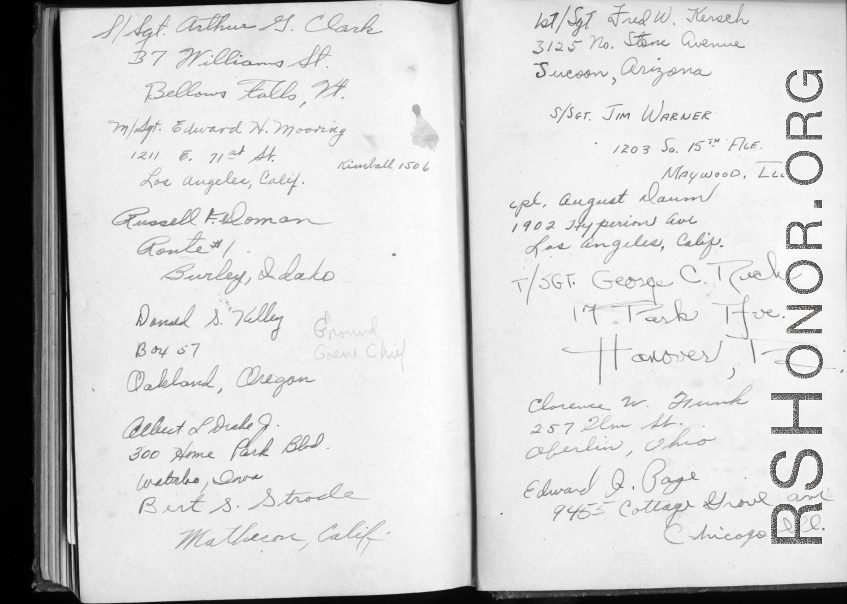 S/Sgt. Arthur G. Clark
37 Williams St.
Bellows Falls, Vt.
M/Sgt. Edward H. Mooring
1211 E. 71st St.
Kimball 1506
Los Angeles, Calif.
Russell F. Doman
Route #1
Burley, Idaho
Donald S. Kelley
Box 57
Oakland, Oregon
Ground
Crew Chief
Albert L Drake Jr.
300 Home Park Blvd.
Waterloo, Iowa
Bert S. Strode
Matheson, Calif.
1st/Sgt Fred W. Kersch
3125 No. Stone Avenue
Tucson, Arizona
S/SGT. JIM WARNER
1203 So. 15TH AVE.
MAYWOOD, ILL
cpl. August Daum
1902 Hyperion Ave
Los Angeles, Calif.
T/SGT. George C.
17 Park Ave.
Hanover,
Clarence W. Funk
257 Elm St.
Oberlin, Ohio
Edward J. Page
9455 Cottage Grove ave
Chicago Ill.
RSHONOR.ORG